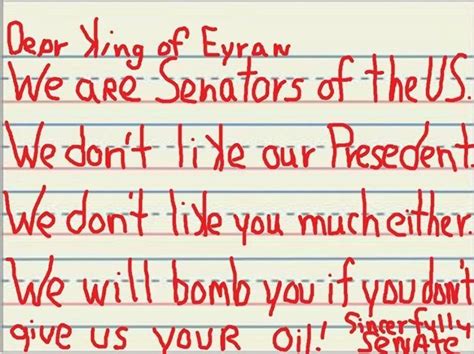 Dear King of Eyran
We are Senators of the US.
We don't like our Presedent
We don't like you much either.
We will bomb you if you don't
give us your oil! Sincerfully
SENATE